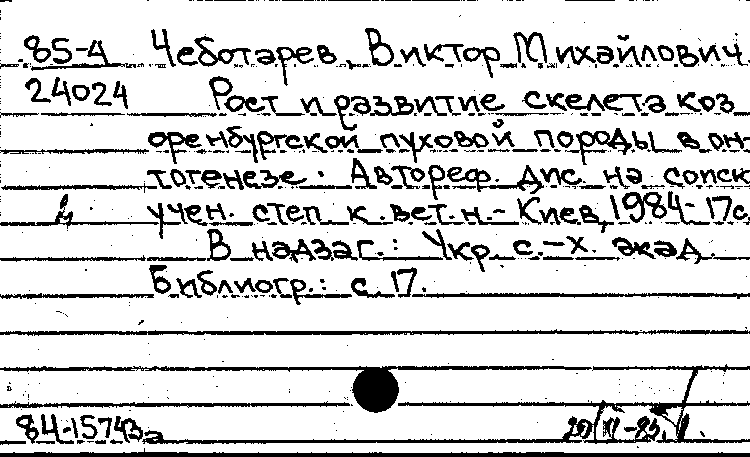 85-4 Чеботарев, Виктор Михайлович
24024 Рост и развитие скелета коз
оренбургской пуховой породы в он-
тогенезе. Автореф. дис. на соиск
учен. степ. к. вет. н. - Киев, 1984 - 17с
В надзаг.: Укр. с.-х. акад.
Библиогр.: с. 17.
84-15743а